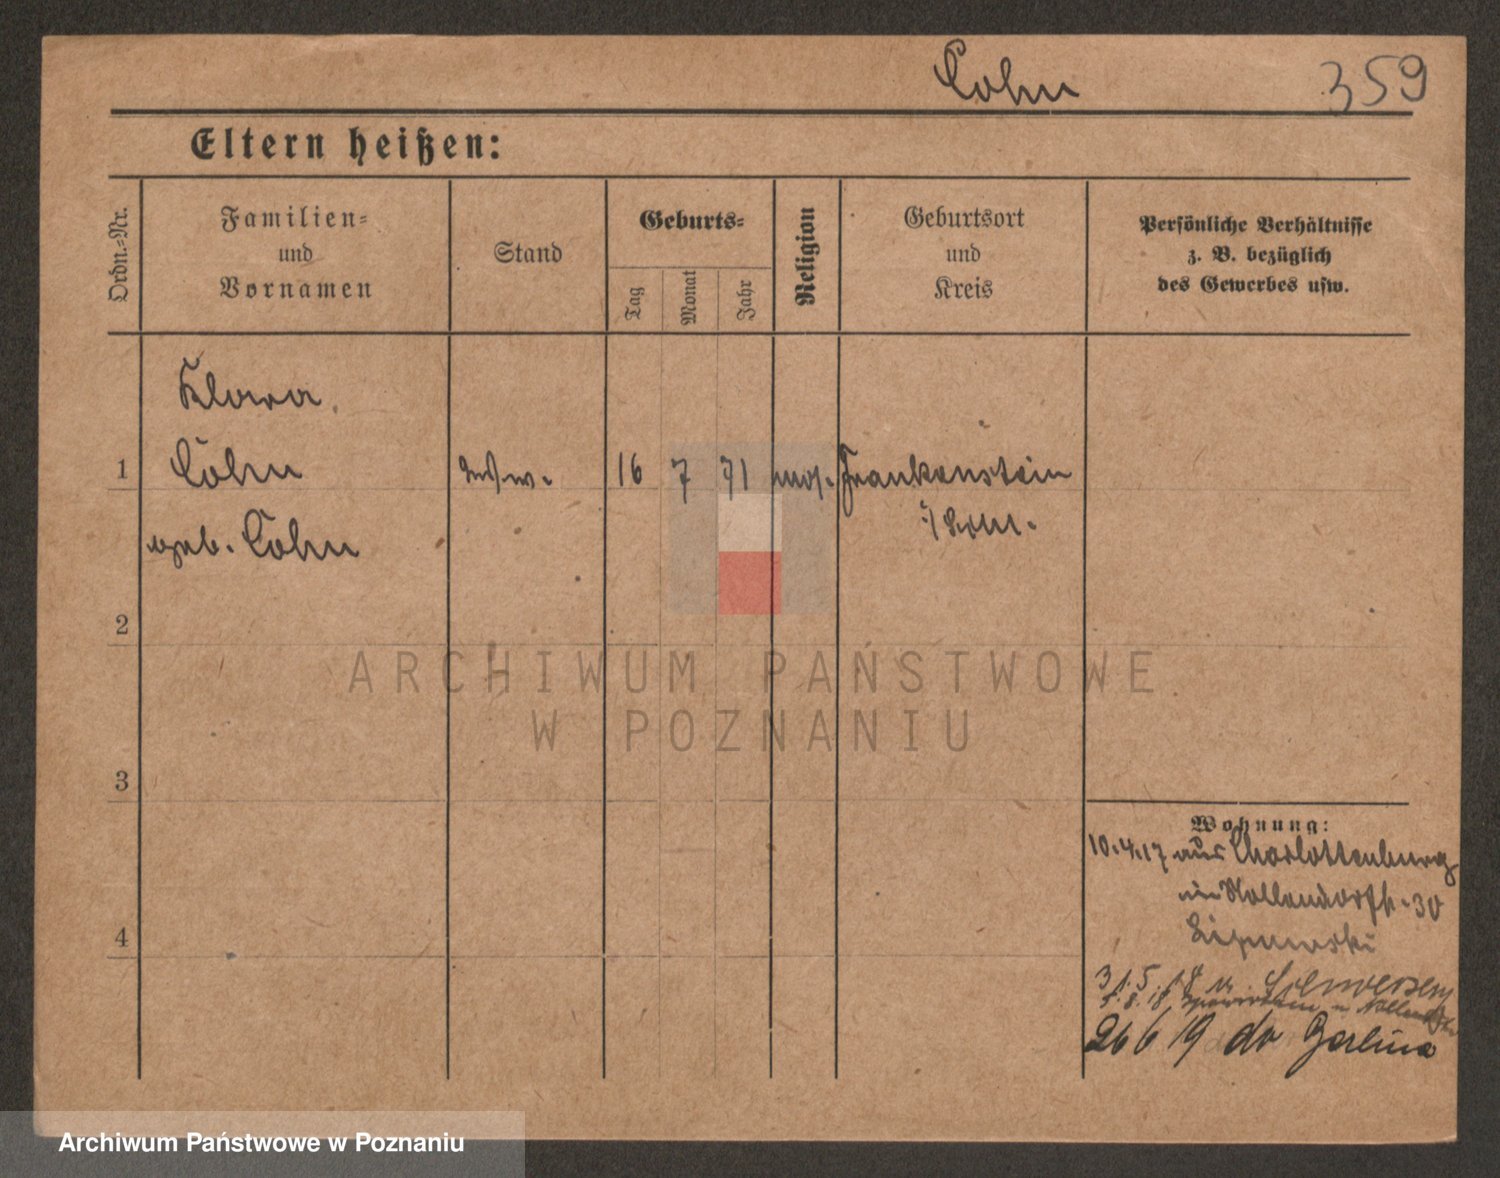 Cohn 359
Eltern heißen:
Ordn.-Nr.
Familien-
und
Vornamen
Stand
Geburts-
Tag
Monat
Jahr
Religion
Geburtsort
und
Kreis
Persönliche Verhältnisse
z. B. bezüglich
des Gewerbes usw.
Klara
1 Cohn 16 7 71 mos. Frankenstein
geb. Cohn
2
3
4
Wohnung:
10.4.17 aus Charlottenburg
30
31.5.18
5.8.18
26 6 19 do Berlina
ARCHIWUM PAŃSTWOWE
W POZNANIU
Archiwum Państwowe w Poznaniu